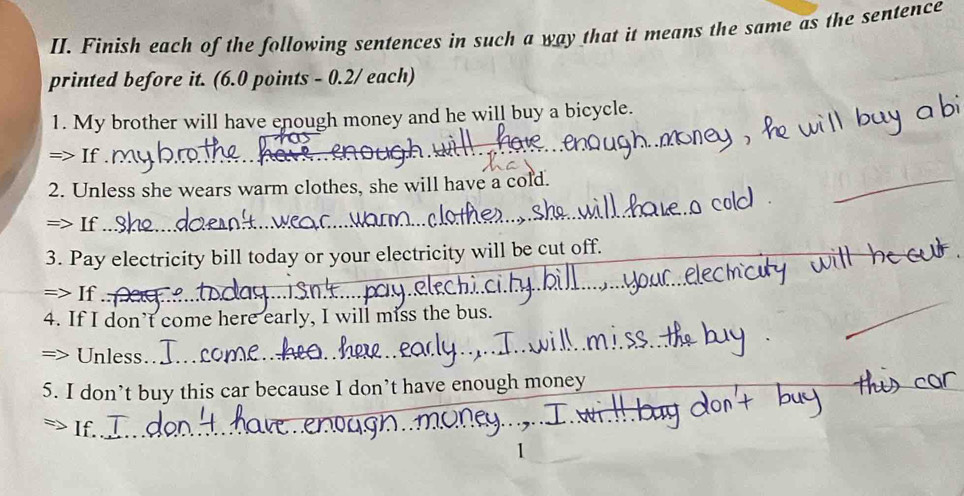 II. Finish each of the following sentences in such a way that it means the same as the sentence
printed before it. (6.0 points - 0.2/ each)
1. My brother will have enough money and he will buy a bicycle.
has
=> If my brothe have enough will have enough money, he will buy a bi
has
2. Unless she wears warm clothes, she will have a cold.
=> If she doesn't wear warm clothes, she will have a cold.
3. Pay electricity bill today or your electricity will be cut off.
=> If today isn't pay electricity bill, your electricity will be cut.
4. If I don't come here early, I will miss the bus.
=> Unless I come here early, I will miss the buy.
5. I don't buy this car because I don't have enough money
=> If I don't have enough money, I will buy don't buy this car
1